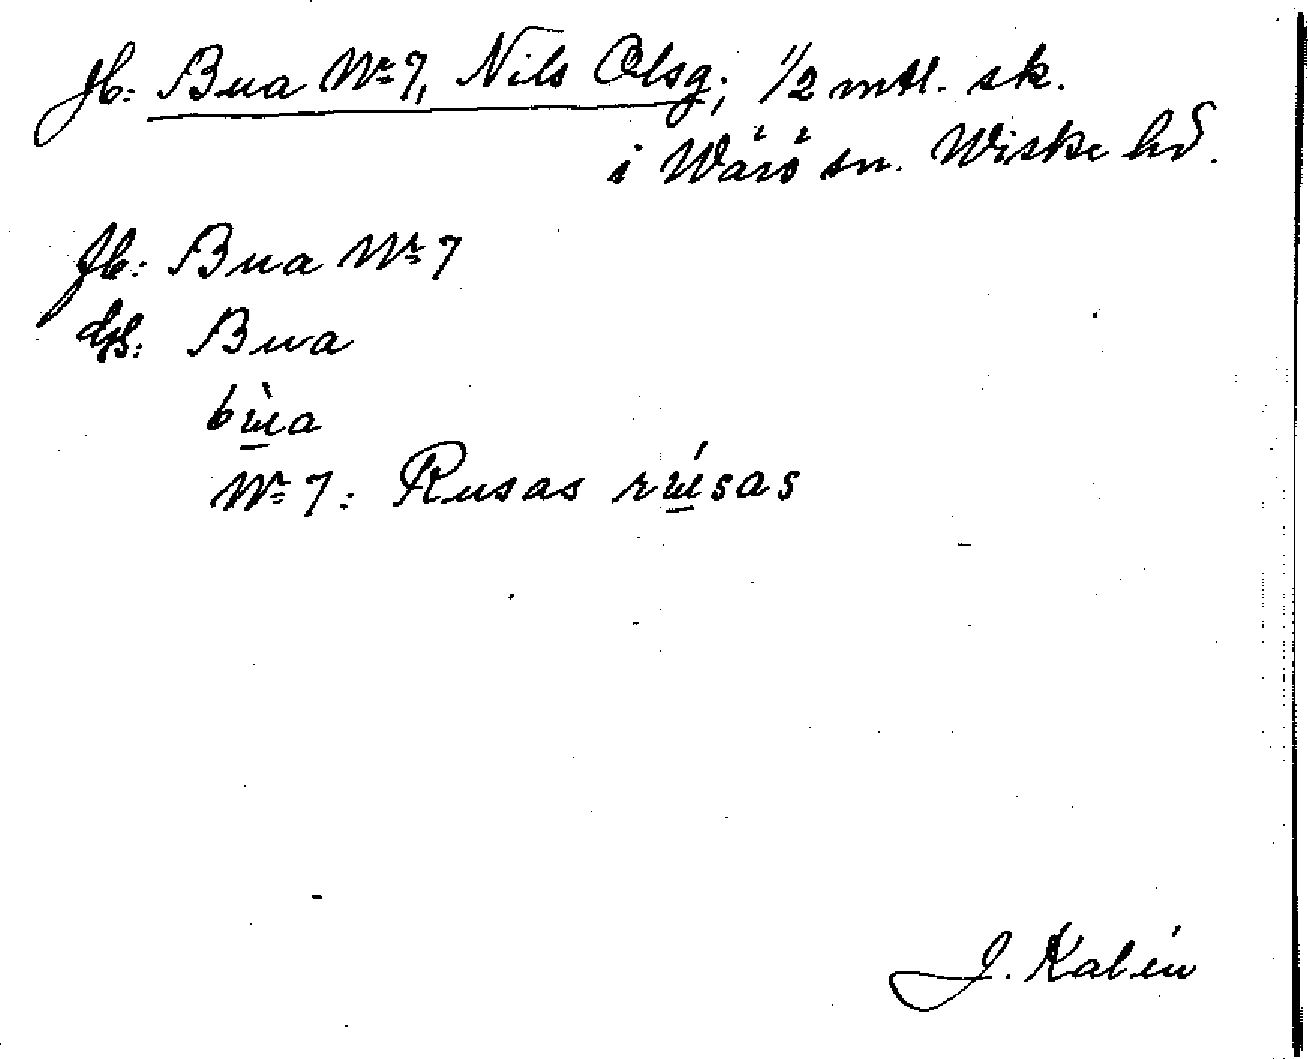 Jb: Bua Nr 7, Nils Olsg; 1/2 mtl. sk.
i Wärö sn. Wiske hd.
Jb: Bua Nr 7
Bua
bùa
Nr 7: Rusas rúsas
J. Kalén